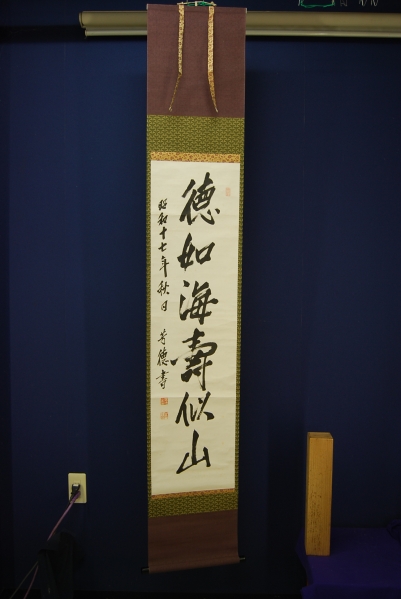 德如海壽似山
昭和十七年秋日 芳德書